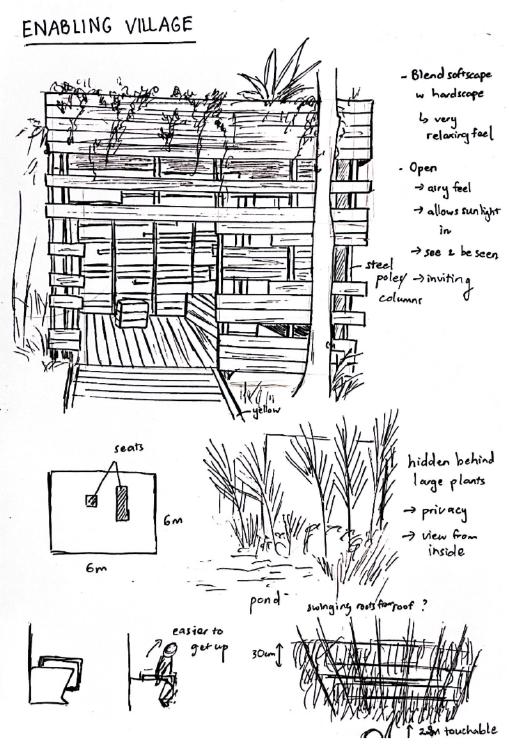 ENABLING VILLAGE
- Blend softscape
w hardscape
↳ very
relaxing feel
- Open
→ airy feel
→ allows sunlight
in
→ see & be seen
→ inviting
steel
poles/
columns
yellow
seats
6m
6m
hidden behind
large plants
→ privacy
→ view from
inside
pond
swinging roots from roof ?
easier to
get up
30cm
touchable